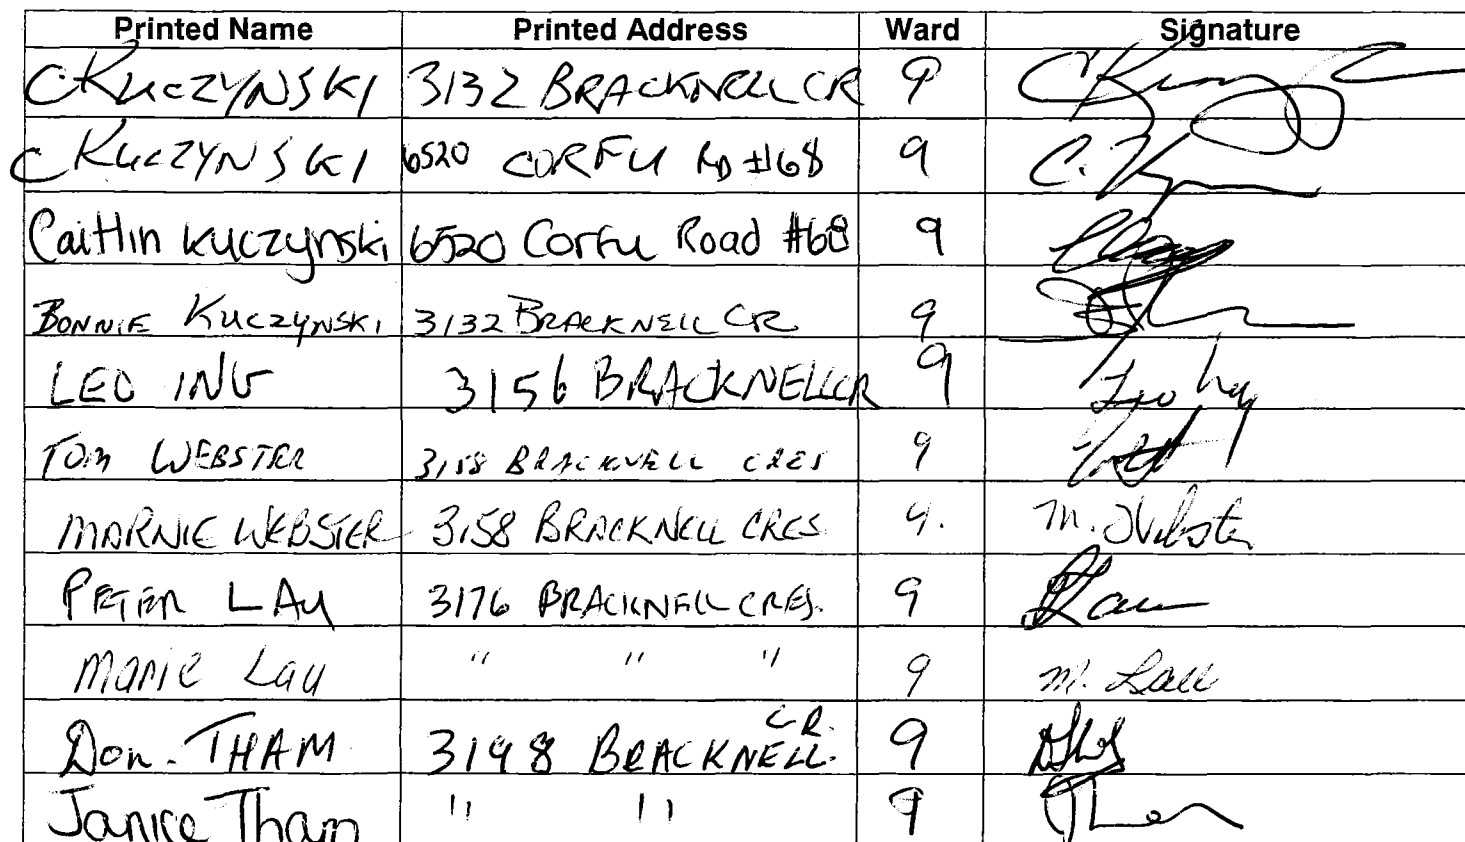 Printed Name Printed Address Ward Signature
CKUCZYNSKI 3132 BRACKNELL CR 9
C KUCZYNSKI 6520 CORFU RD #68 9
Caitlin Kuczynski 6520 Corfu Road #68 9
BONNIE KUCZYNSKI 3132 BRACKNELL CR 9
LEO ING 3156 BRACKNELL CR 9
TOM WEBSTER 3158 BRACKNELL CRES 9
MARNIE WEBSTER 3158 BRACKNELL CRES 9. M. Webster
PETER LAU 3176 BRACKNELL CRES. 9
Marie Lau " " " 9 M. Lau
Don. THAM 3198 BRACKNELL CR. 9
Janice Tham " " 9